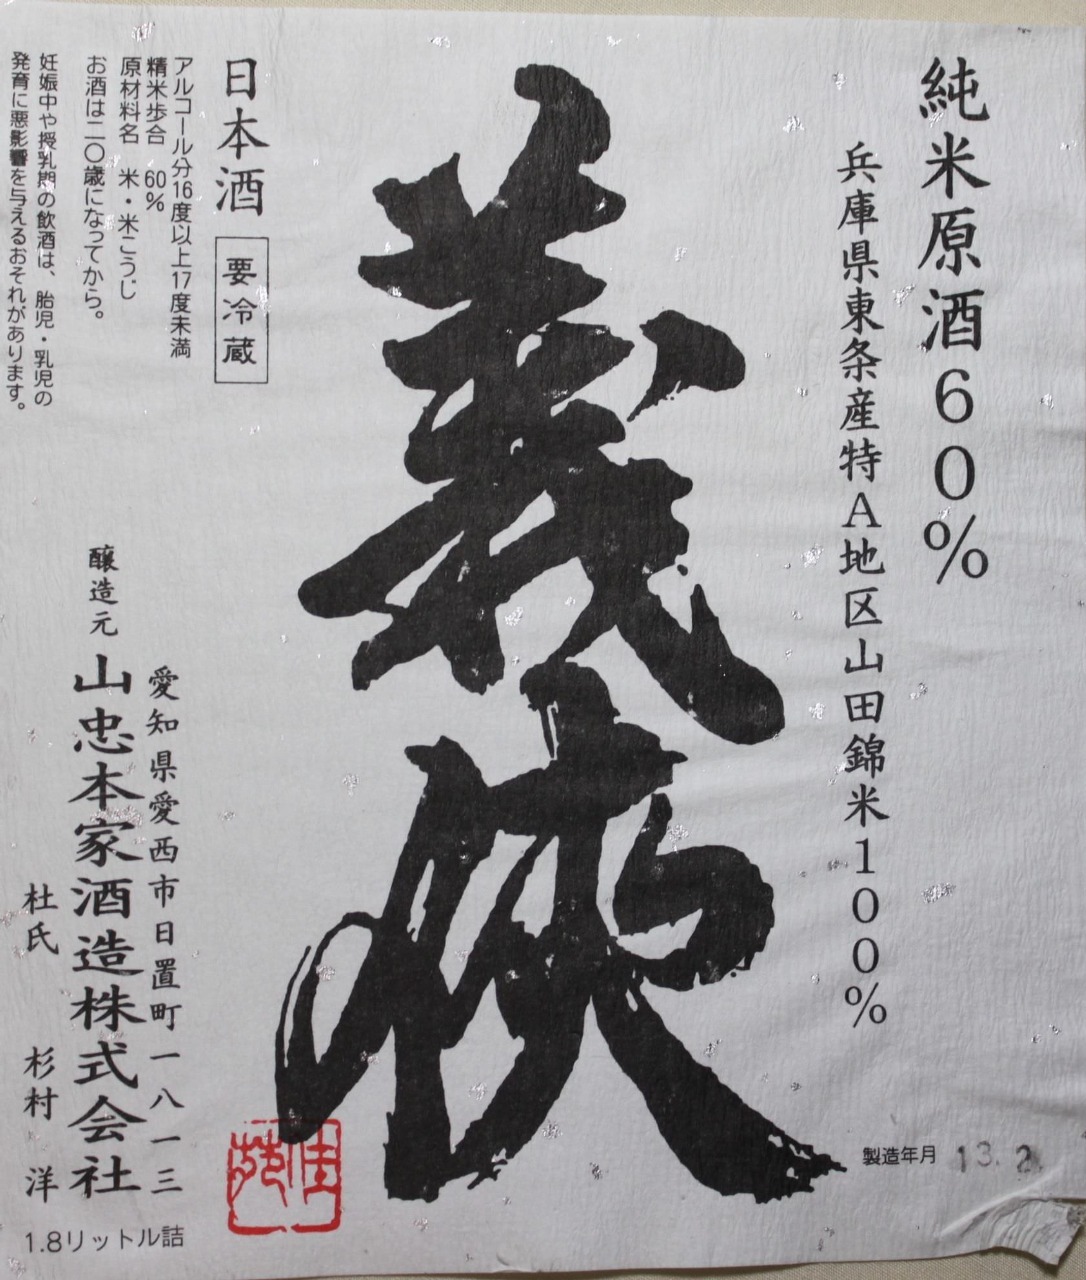 純米原酒60%
兵庫県東条産特A地区山田錦米100%
製造年月 13. 2.
義侠
日本酒
要冷蔵
アルコール分16度以上17度未満
精米歩合 60%
原材料名 米・米こうじ
お酒は二〇歳になってから。
妊娠中や授乳期の飲酒は、胎児・乳児の
発育に悪影響を与えるおそれがあります。
愛知県愛西市日置町一八一三
醸造元 山忠本家酒造株式会社
杜氏 杉村 洋
1.8リットル詰